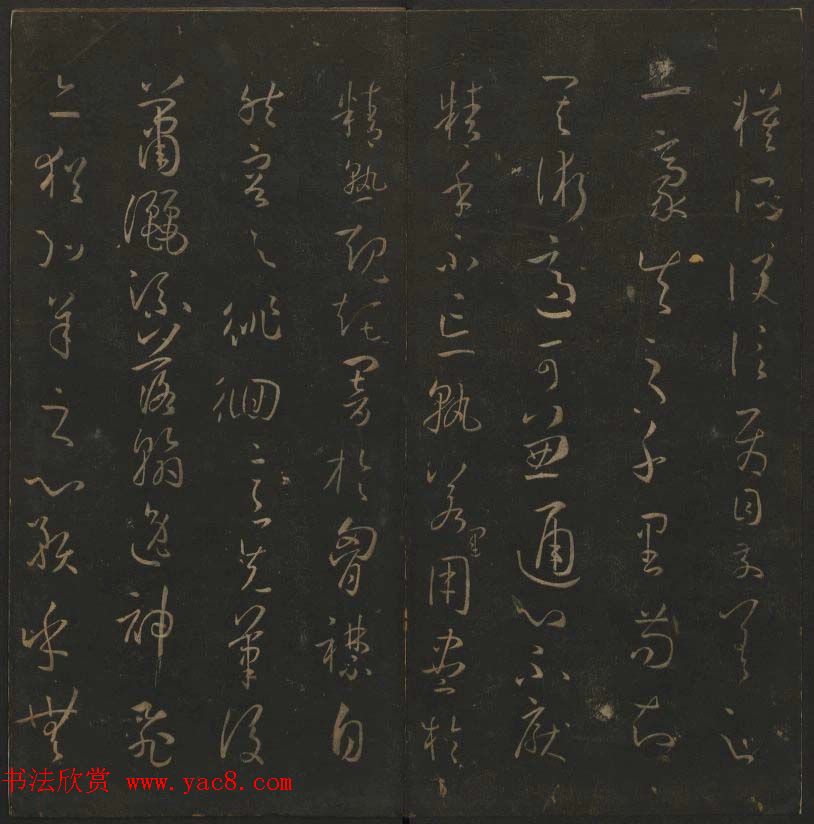 模所設信屬目前差之
一豪失之千里苟知
其術適可兼通心不厭
精手不忘熟若運用盡於
精熟規矩闇於胷襟自
然容與徘徊意先筆後
瀟灑流落翰逸神飛
亦猶弘羊之心預乎無
书法欣赏 www.yac8.com